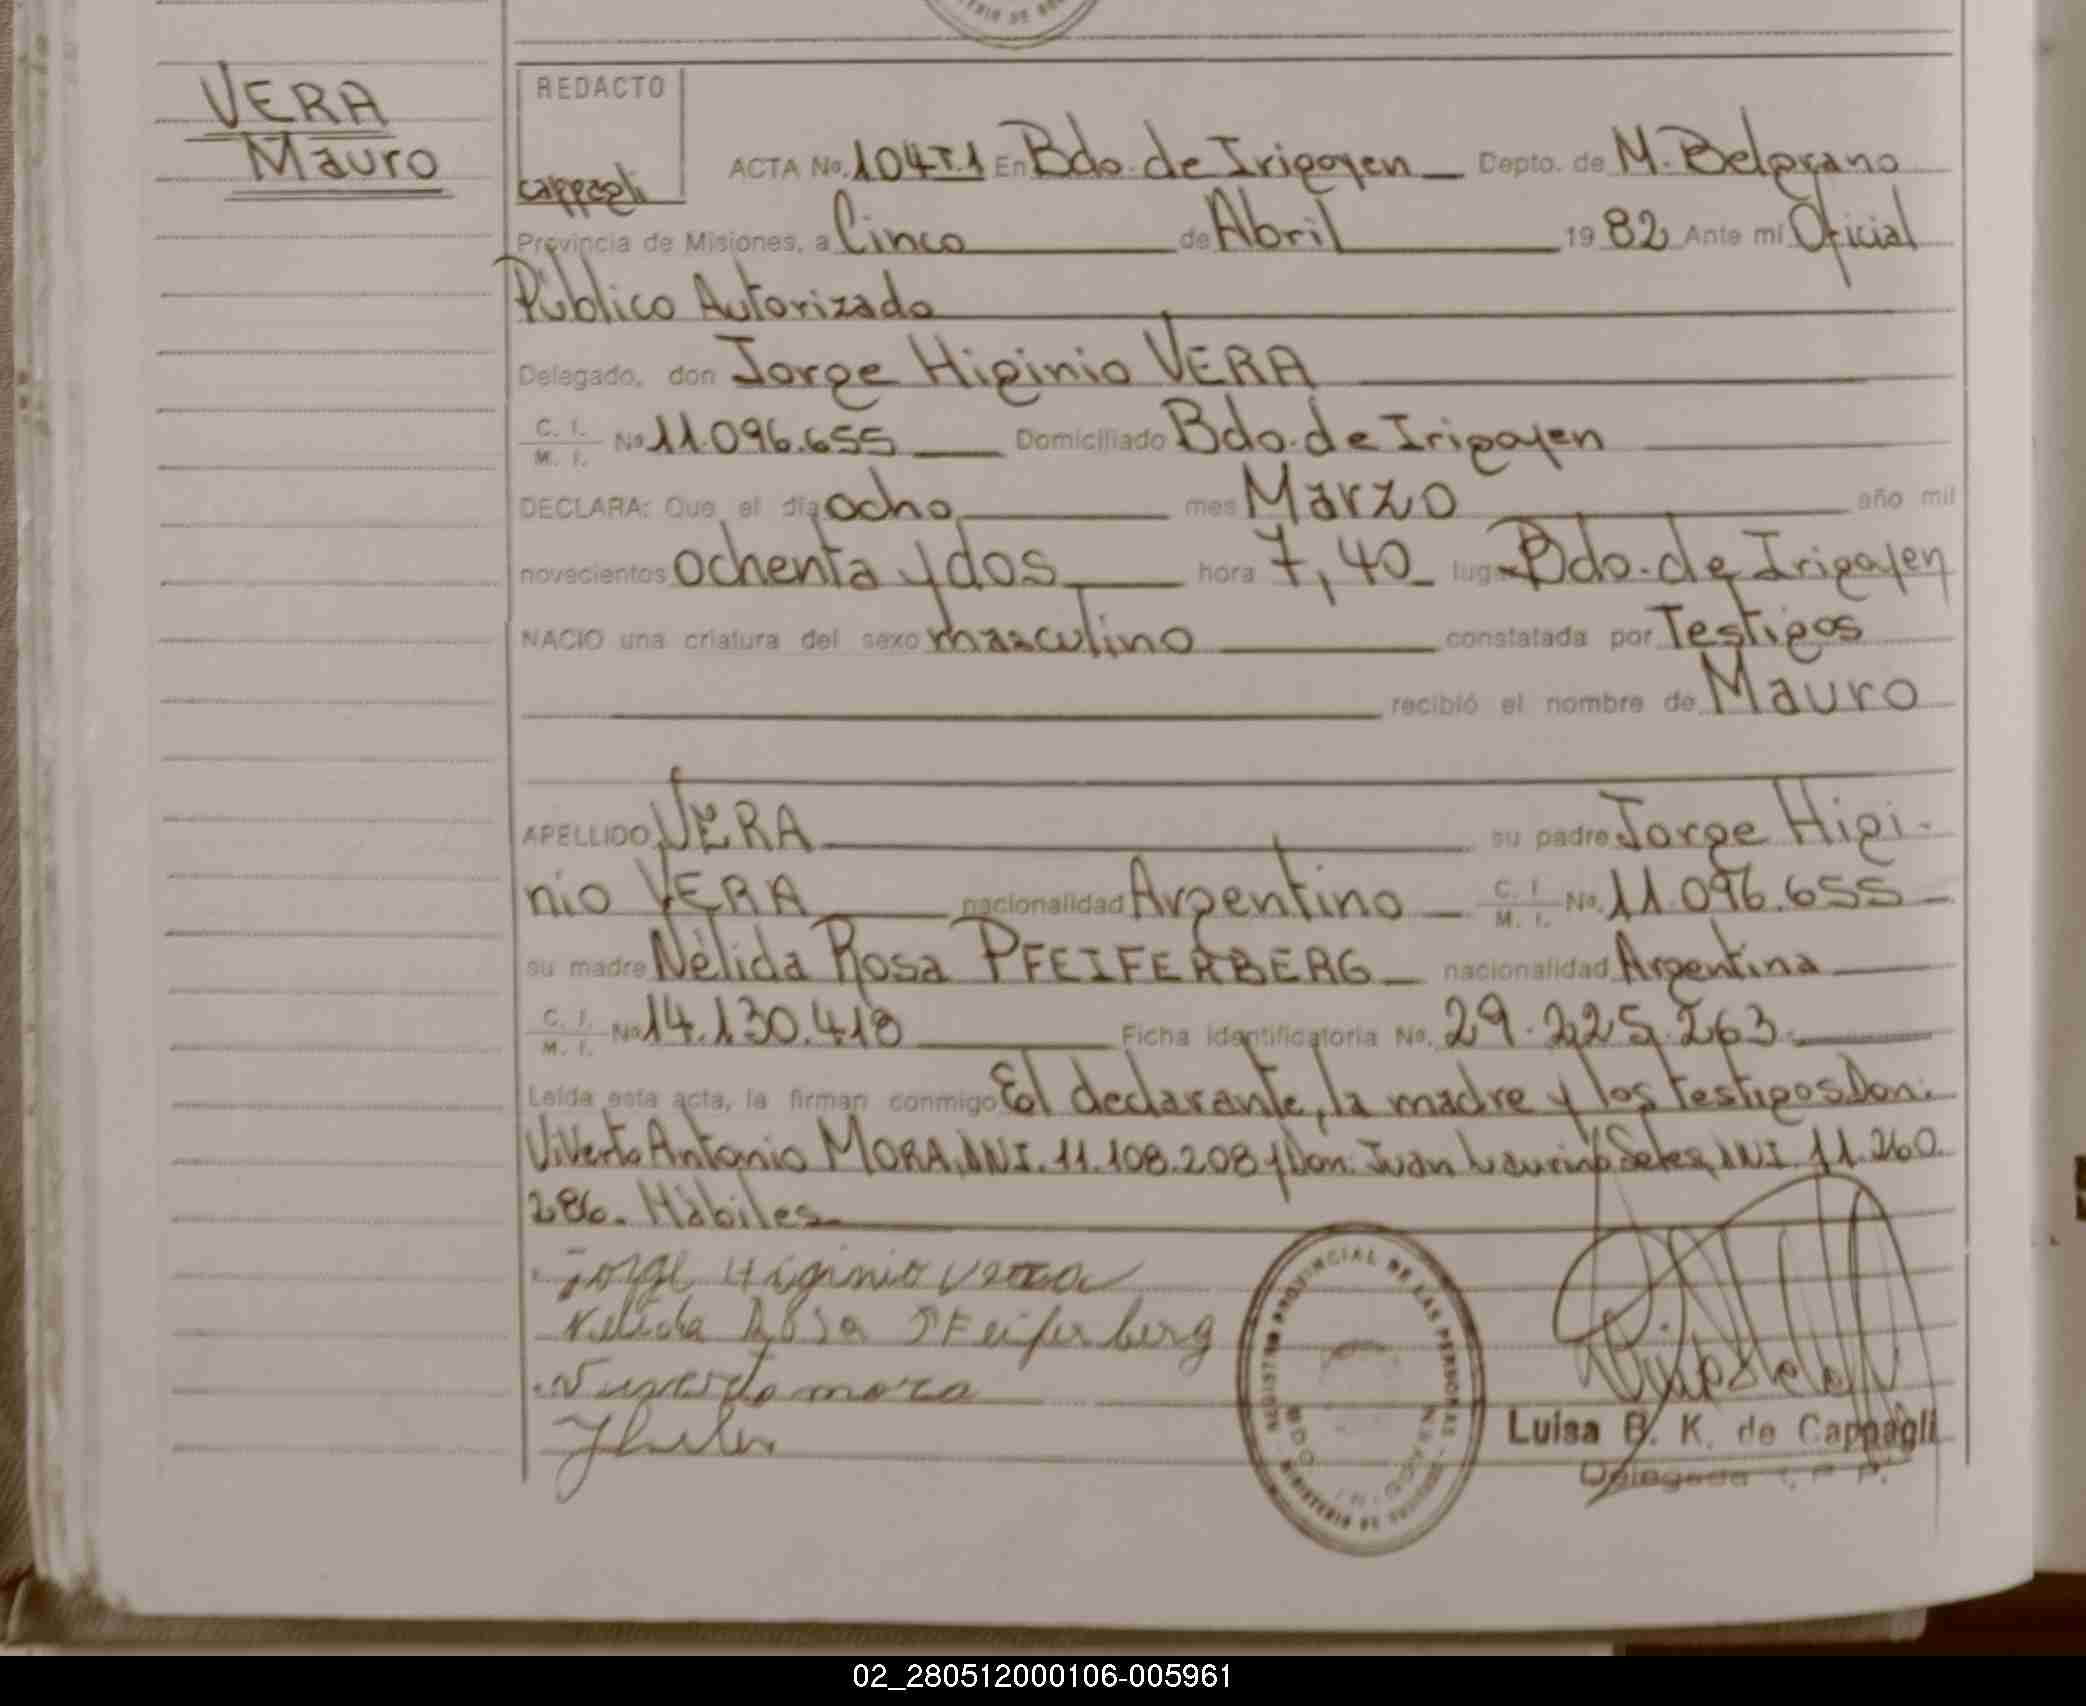 VERA
Mauro
REDACTO
cappagli
ACTA No. 104T.1 En Bdo. de Irigoyen Depto. de M. Belgrano
Provincia de Misiones, a Cinco de Abril 1982 Ante mí Oficial
Público Autorizado
Delegado, don Jorge Higinio VERA
C. I. M. I. No 11.096.655 Domiciliado Bdo. de Irigoyen
DECLARA: Que el día ocho mes Marzo año mil
novecientos ochenta y dos hora 7,40 lugar Bdo. de Irigoyen
NACIO una criatura del sexo masculino constatada por Testigos
recibió el nombre de Mauro
APELLIDO VERA su padre Jorge Higi-
nio VERA nacionalidad Argentino C. I. M. I. No. 11.096.655
su madre Nélida Rosa PFEIFERBERG nacionalidad Argentina
C. I. M. I. No 14.130.418 Ficha identificatoria No. 29.225.263
Leída esta acta, la firman conmigo El declarante, la madre y los testigos Don:
Antonio MORA, DNI. 11.108.208 y Don: Juan DNI 11.260.
286. Hábiles
Jorge Higinio Vera
Nelida Rosa PFeiferberg
mora
REGISTRO PROVINCIAL DE LAS PERSONAS
Luisa B. K. de Cappagli
Delegada
02_280512000106-005961